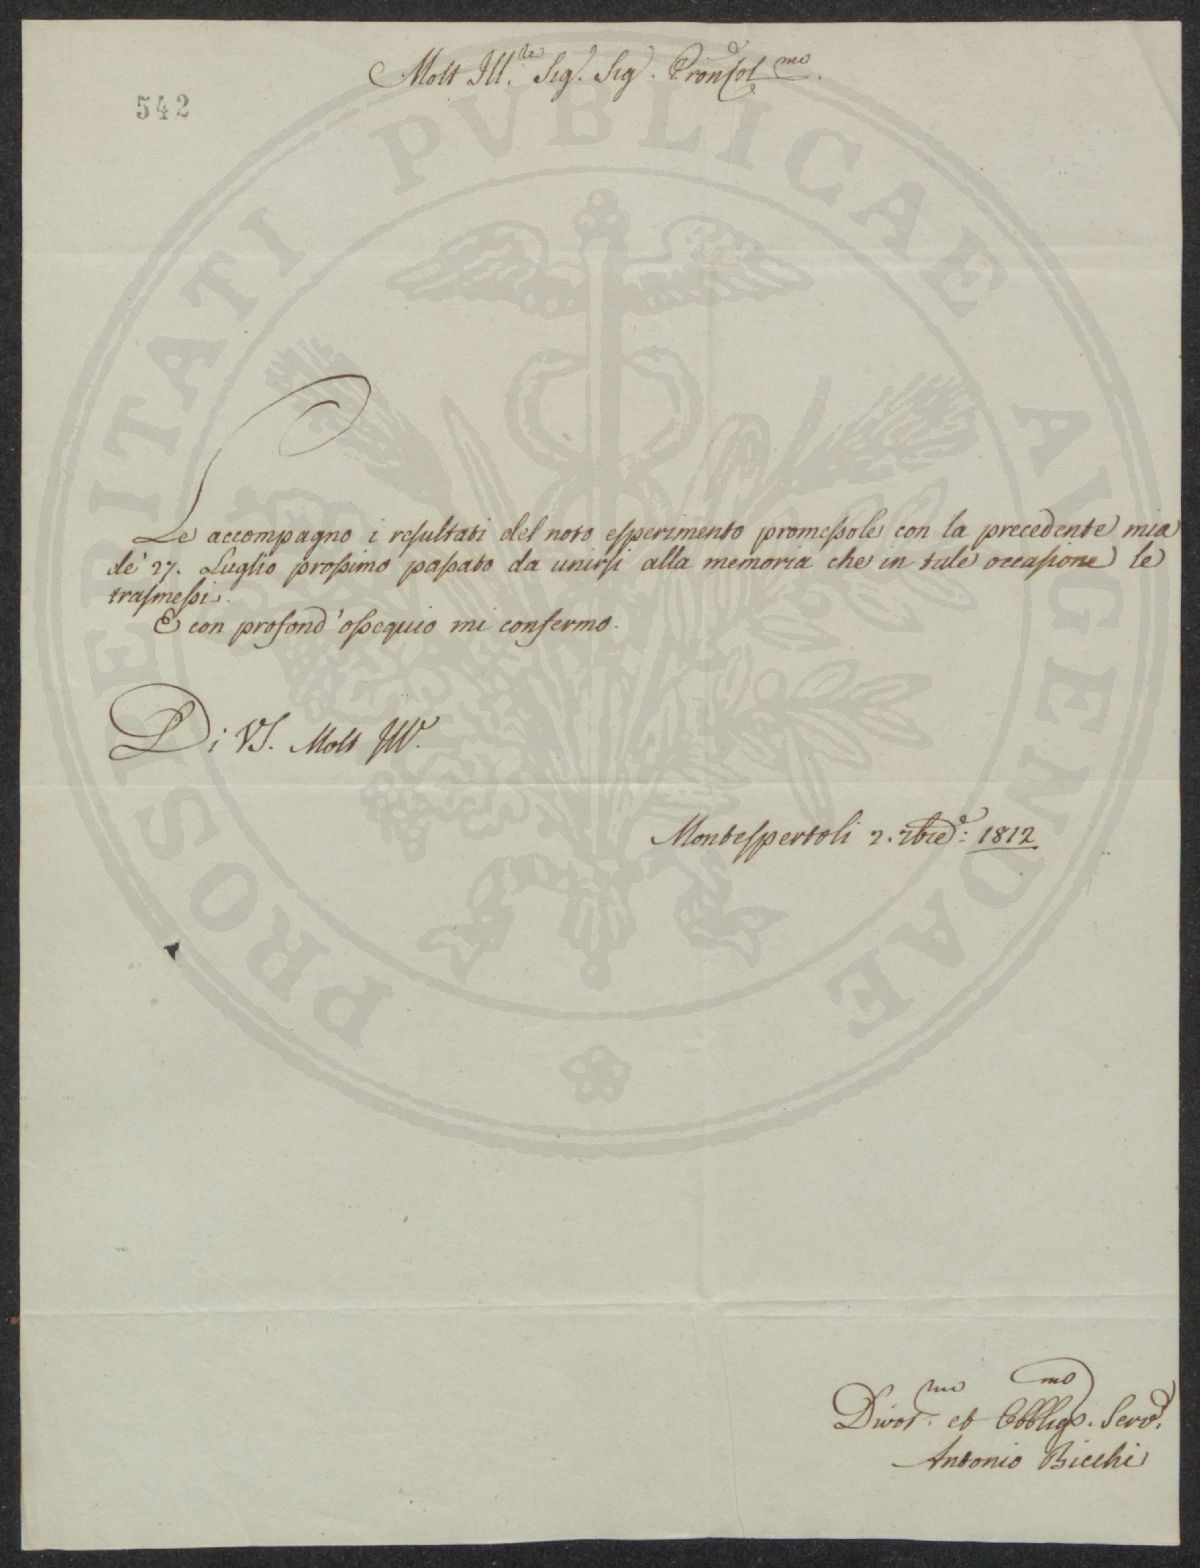 Molt Ill.re Sig.r Sig.r Pron Col.mo
542
PROSPERITATI PVBLICAE AVGENDAE
Le accompagno i resultati del noto esperimento promessole con la precedente mia
de' 27. Luglio prossimo passato da unirsi alla memoria che in tale occasione le
trasmessi.
E con profond'ossequio mi confermo.
Di VS. Molt Ill.e
Montespertoli 2. 1812
Divot.mo et Obbligo.mo Serv.e
Antonio Bicchi